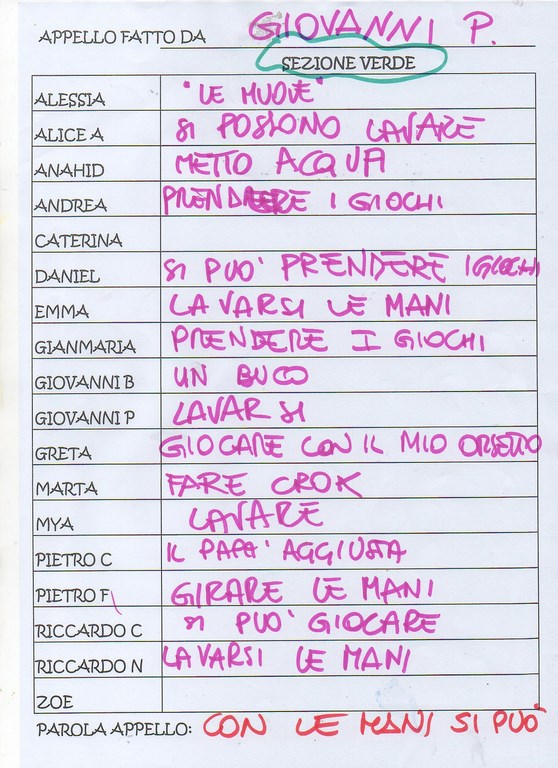 APPELLO FATTO DA GIOVANNI P.
SEZIONE VERDE
ALESSIA "LE MUOVE"
ALICE A SI POSSONO LAVARE
ANAHID METTO ACQUA
ANDREA PRENDERE I GIOCHI
CATERINA
DANIEL SI PUO' PRENDERE I GIOCHI
EMMA LAVARSI LE MANI
GIANMARIA PRENDERE I GIOCHI
GIOVANNI B UN BUCO
GIOVANNI P LAVARSI
GRETA GIOCARE CON IL MIO ORSETTO
MARTA FARE CROK
MYA LAVARE
PIETRO C IL PAPA' AGGIUSTA
PIETRO F GIRARE LE MANI
RICCARDO C SI PUO' GIOCARE
RICCARDO N LAVARSI LE MANI
ZOE
PAROLA APPELLO: CON LE MANI SI PUO'